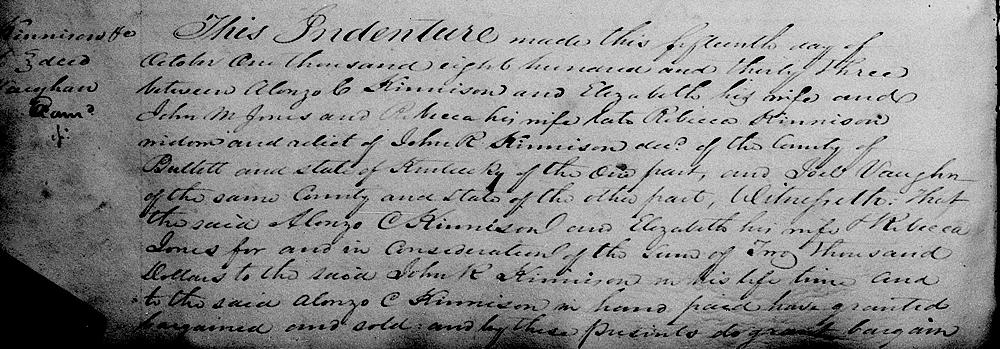 Kinnison &c
deed
Vaughan
Exam^d
This Indenture made this fifteenth day of
October One thousand eight hundred and thirty three
between Alonzo C Kinnison and Elizabeth his wife and
John M Jones and Rebecca his wife late Rebecca Kinnison
widow and relict of John R Kinnison dec^d of the County of
Bullett and state of Kentucky of the One part, and Joel Vaughn
of the same County and state of the other part, Witnesseth: That
the said Alonzo C Kinnison and Elizabeth his wife & Rebecca
Jones for and in Consideration of the Sum of Two Thousand
Dollars to the said John R Kinnison in his life time and
to the said Alonzo C Kinnison in hand paid have granted
bargained and sold: and by these presents do grant bargain